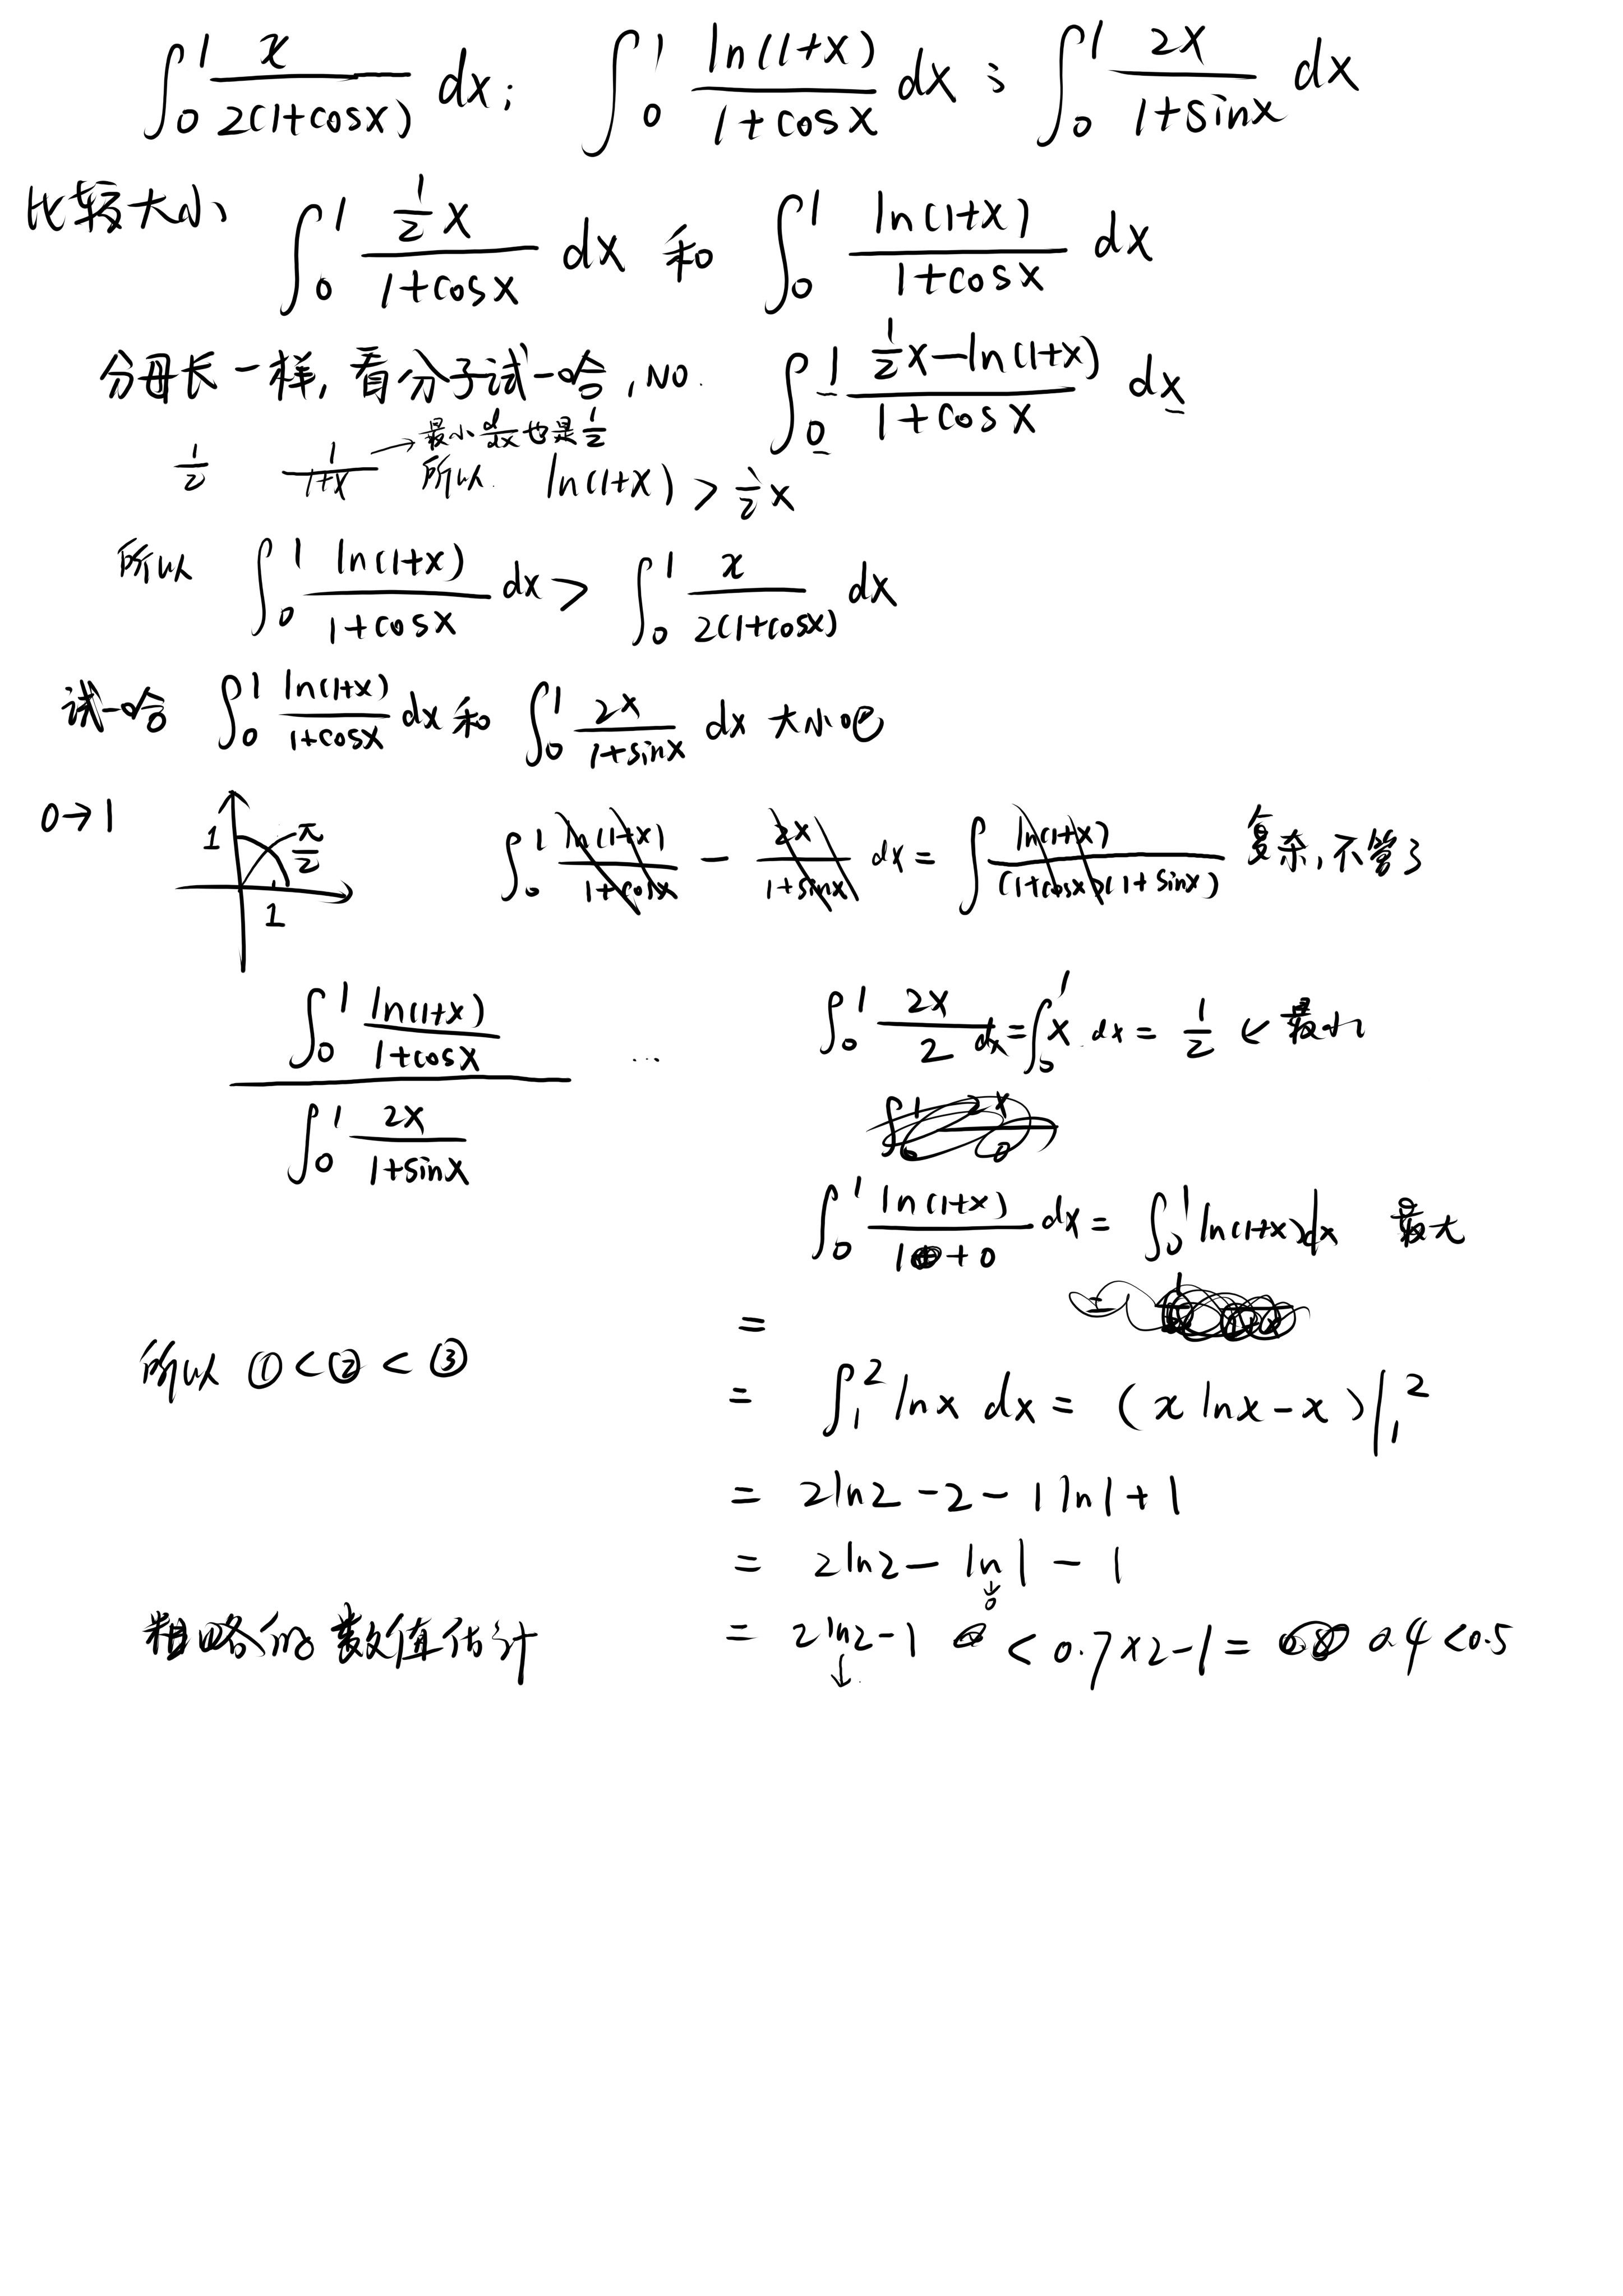 ∫₀¹ x/(2(1+cosx)) dx; ∫₀¹ ln(1+x)/(1+cosx) dx; ∫₀¹ 2x/(1+sinx) dx
比较大小 ∫₀¹ ½x/(1+cosx) dx 和 ∫₀¹ ln(1+x)/(1+cosx) dx
分母长一样, 看分子试一哈, NO. ∫₀¹ (½x-ln(1+x))/(1+cosx) dx
1/2 1/(1+x) → 最小 d/dx 也是 1/2
所以 ln(1+x) > ½x
所以 ∫₀¹ ln(1+x)/(1+cosx) dx > ∫₀¹ x/(2(1+cosx)) dx
试一哈 ∫₀¹ ln(1+x)/(1+cosx) dx 和 ∫₀¹ 2x/(1+sinx) dx 大小吧
0→1 1 π/2 1 ∫₀¹ ln(1+x)/(1+cosx) - 2x/(1+sinx) dx = ∫ ln(1+x)/((1+cosx)(1+sinx)) 复杂, 不管了
∫₀¹ ln(1+x)/(1+cosx)
∫₀¹ 2x/(1+sinx)
...
∫₀¹ 2x/2 dx = ∫₀¹ x dx = 1/2 ← 最小
∫₀¹ 2x/0
∫₀¹ ln(1+x)/(1+0) dx = ∫₀¹ ln(1+x)dx 最大
=
所以 ①<②<③
= ∫₁² lnx dx = (x lnx-x)|₁²
= 2ln2-2-1ln1+1
= 2ln2-ln1-1
↓
0
粗略的数值估计
= 2ln2-1 < 0.7×2-1= 0.4<0.5
↓